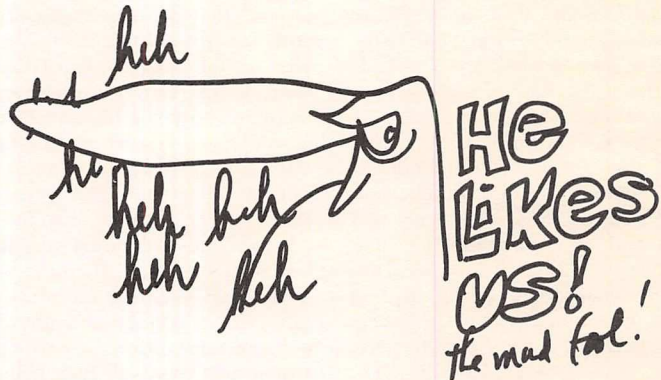 heh
he
heh heh
heh heh
He
Likes
us!
the mad fool!